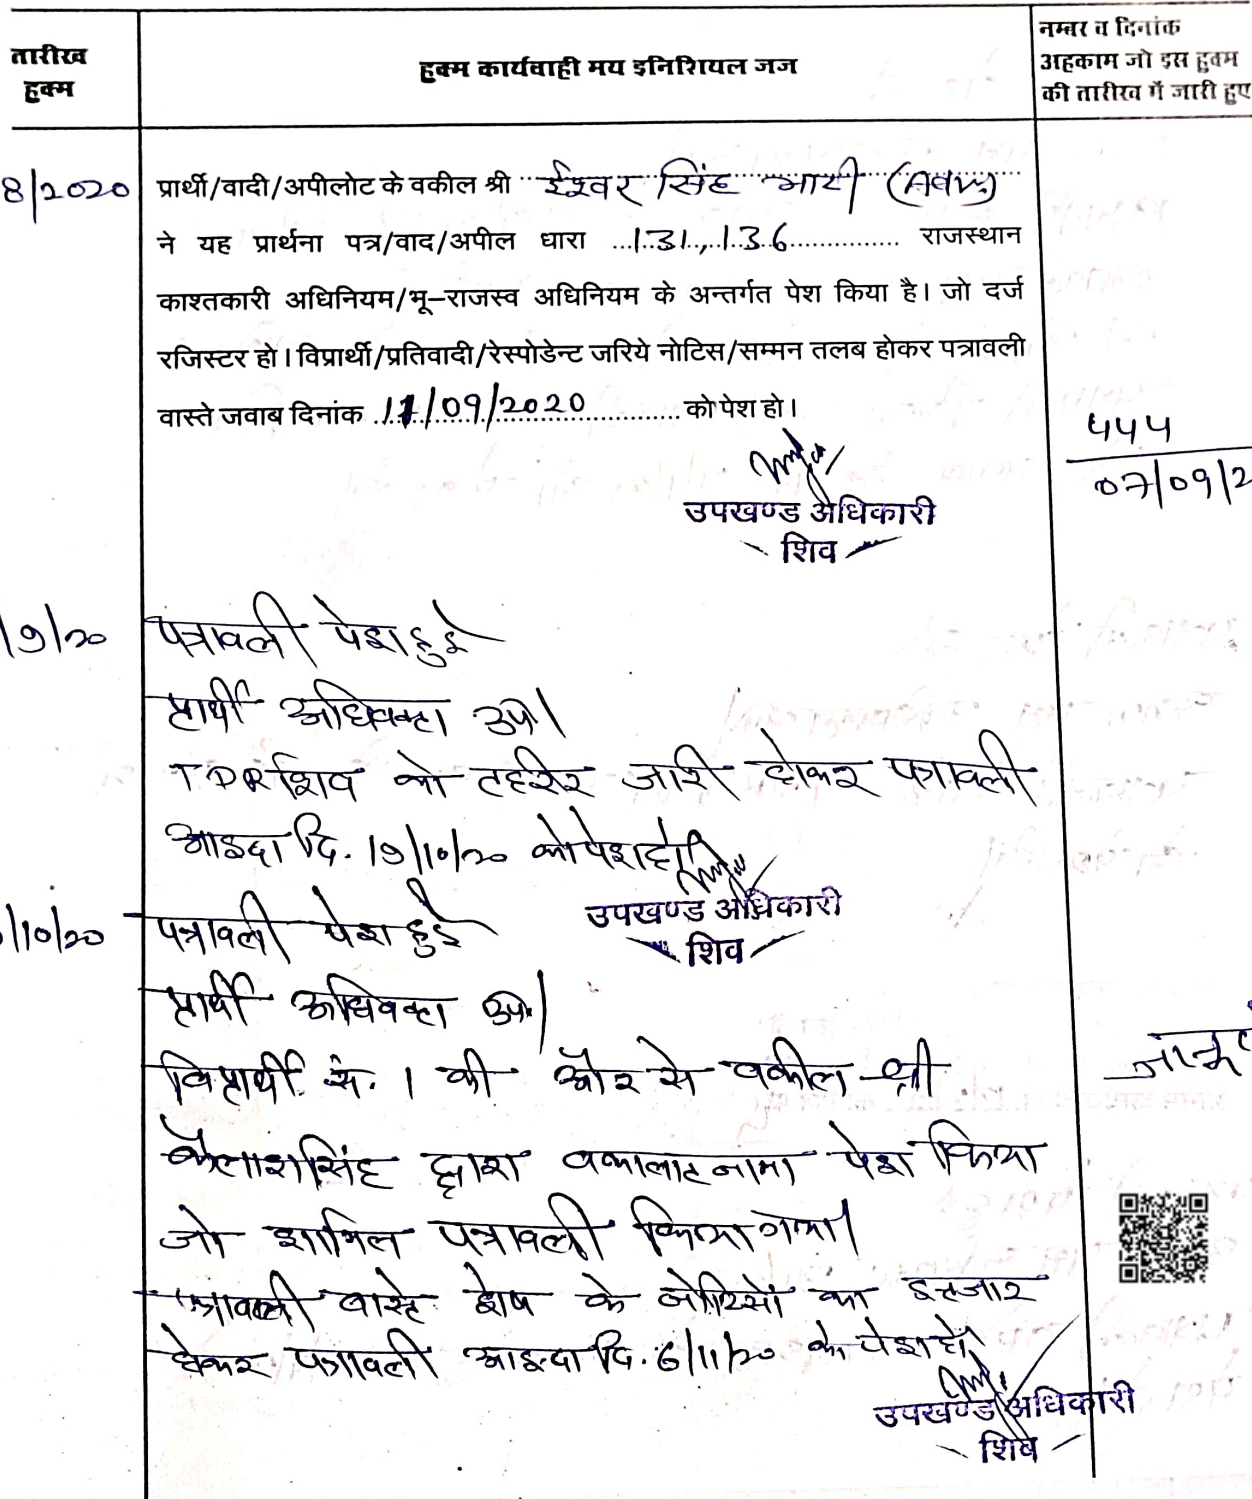 तारीख हुक्म
हुक्म कार्यवाही मय इनिशियल जज
नम्बर व दिनांक
अहकाम जो इस हुक्म
की तारीख में जारी हुए
8/2020
प्रार्थी/वादी/अपीलोट के वकील श्री ईश्वर सिंह भाटी
ने यह प्रार्थना पत्र/वाद/अपील धारा 131, 136 राजस्थान
काश्तकारी अधिनियम/भू-राजस्व अधिनियम के अन्तर्गत पेश किया है। जो दर्ज
रजिस्टर हो। विप्रार्थी/प्रतिवादी/रेस्पोडेन्ट जरिये नोटिस/सम्मन तलब होकर पत्रावली
वास्ते जवाब दिनांक 11/09/2020 को पेश हो।
उपखण्ड अधिकारी
शिव
५५५
07/09/2
/9/20
पत्रावली पेश हुई
प्रार्थी अधिवक्ता उप।
TDR शिव को तहरीर जारी होकर पत्रावली
आइन्दा दि. 19/10/20 को पेश हो।
उपखण्ड अधिकारी
शिव
/10/20
पत्रावली पेश हुई
प्रार्थी अधिवक्ता उप।
विप्रार्थी सं. 1 की और से वकील श्री
कैलाशसिंह द्वारा वकालातनामा पेश किया
जो शामिल पत्रावली किया गया।
पत्रावली वास्ते शेष के नोटिसों का इन्तजार
होकर पत्रावली आइन्दा दि. 6/11/20 को पेश हो।
उपखण्ड अधिकारी
शिव